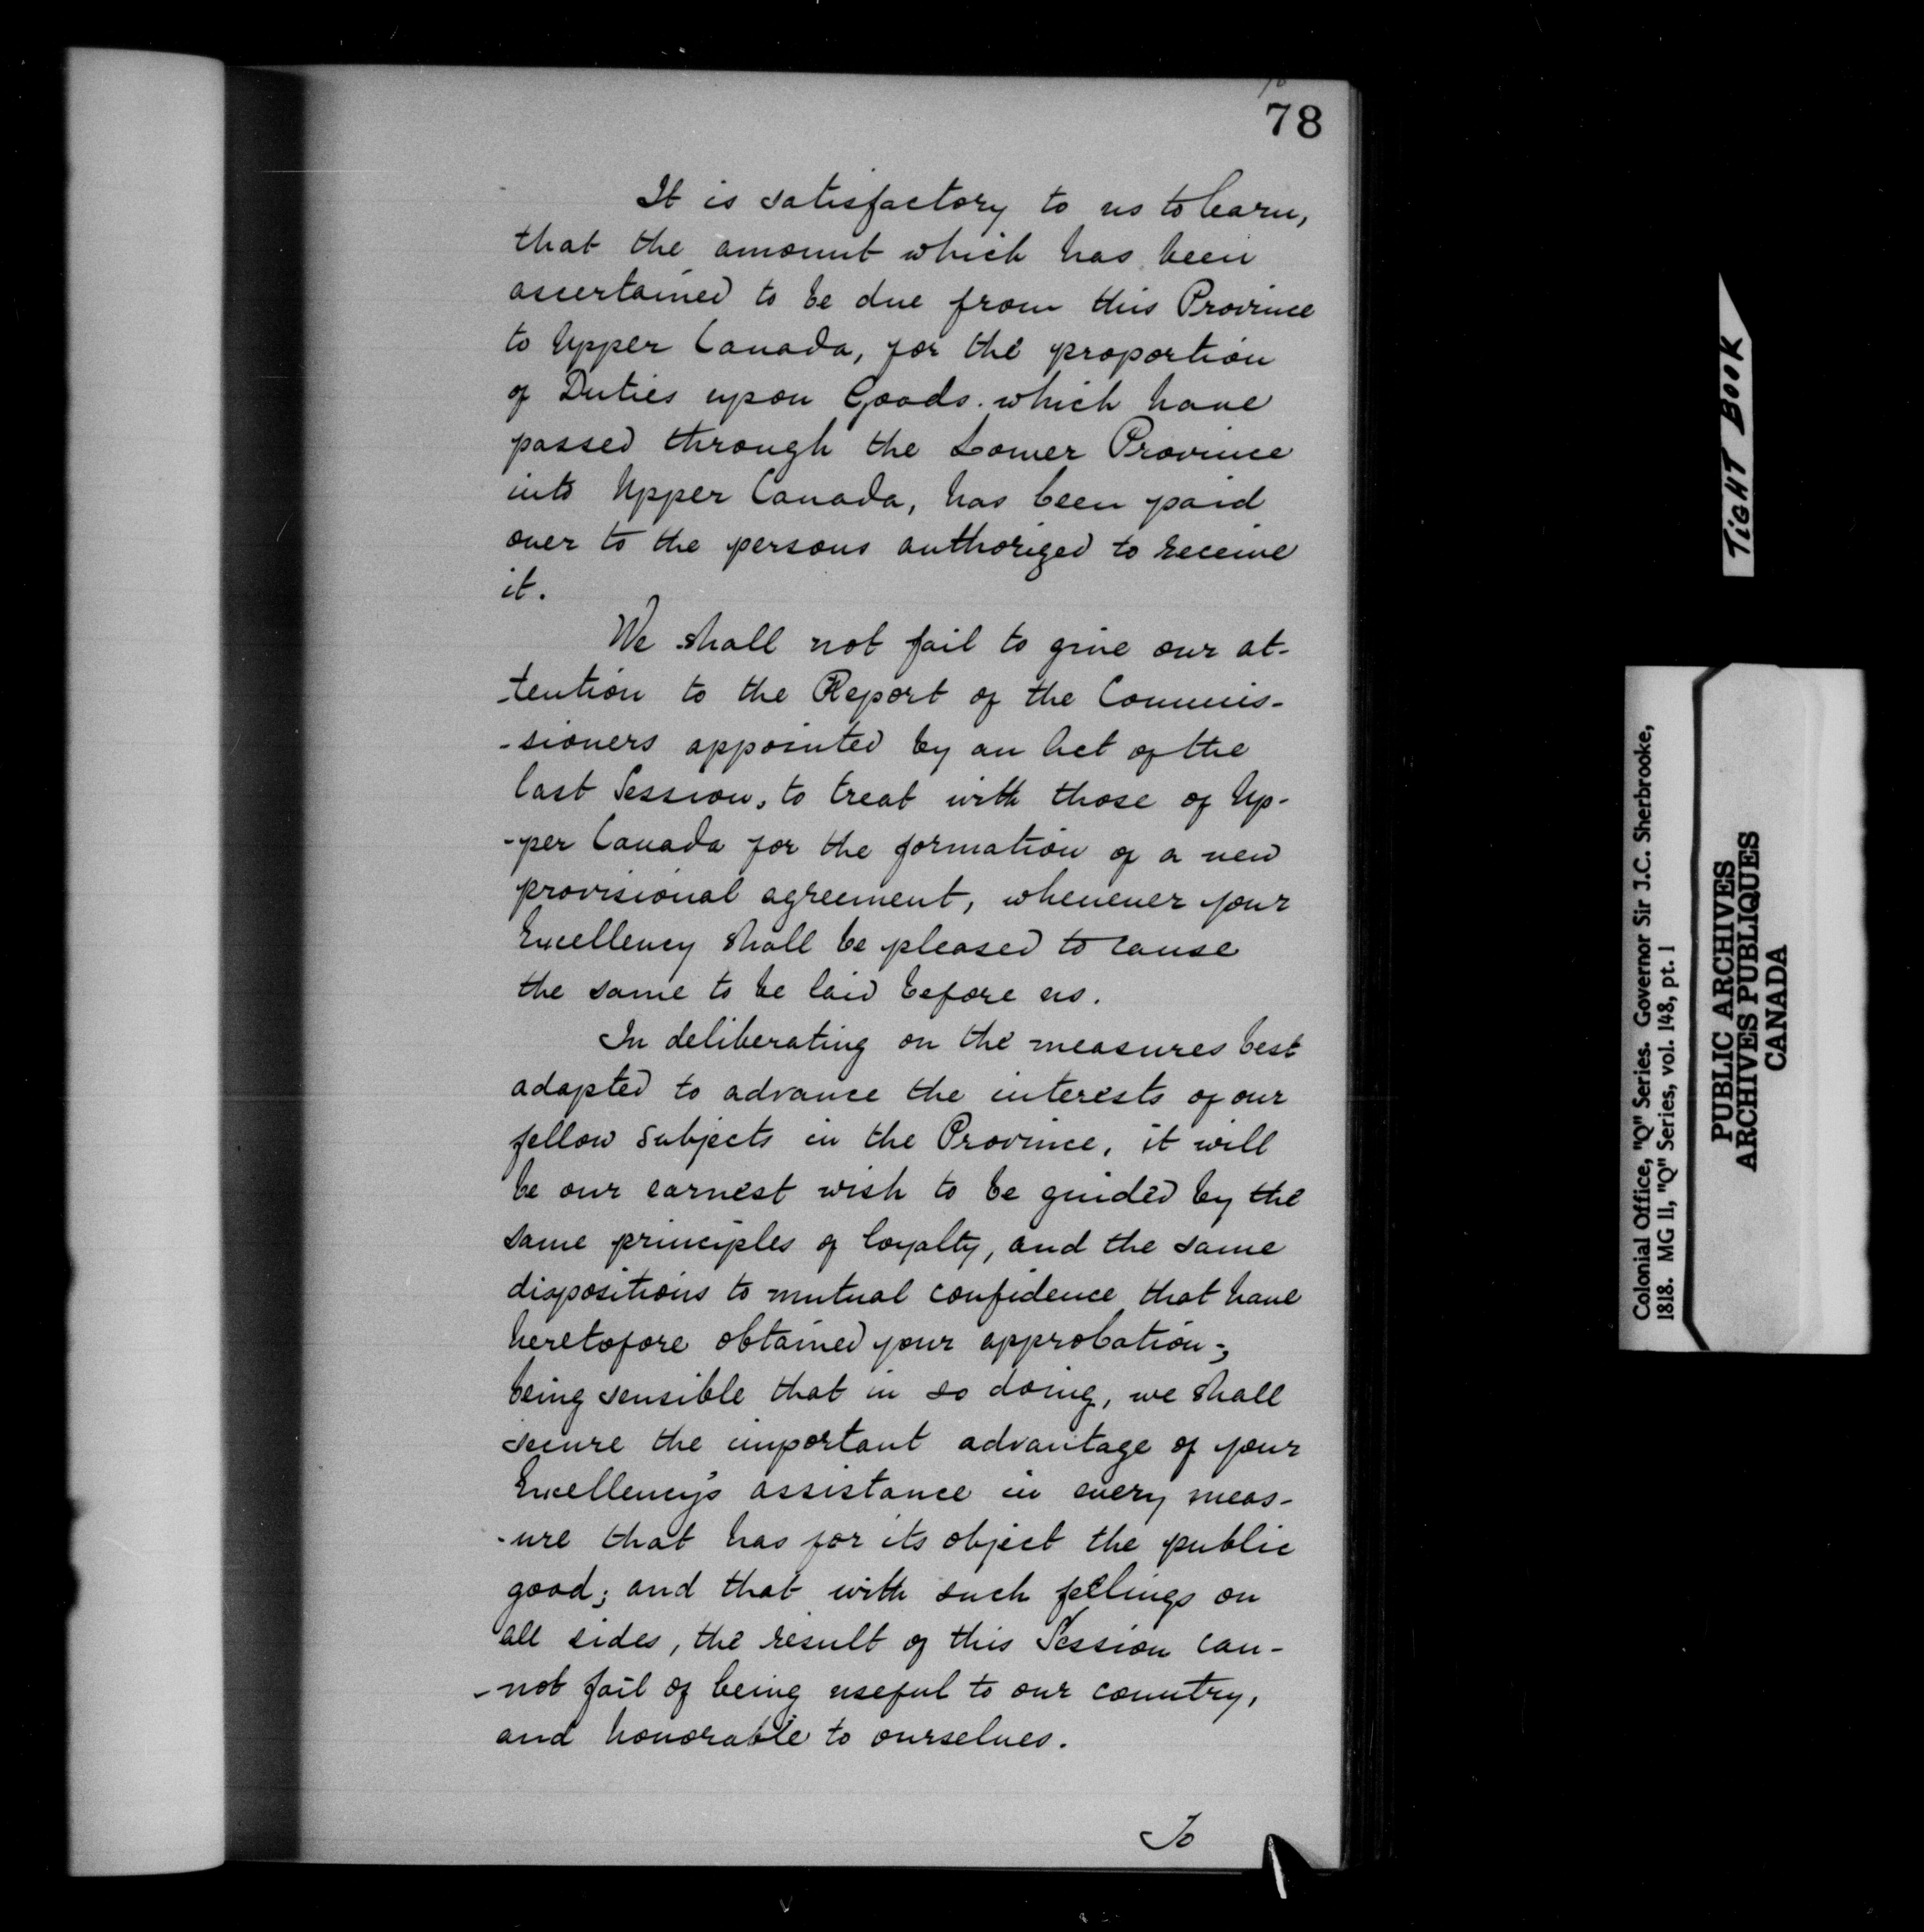 78
It is satisfactory to us to learn,
that the amount which has been
ascertained to be due from this Province
to Upper Canada, for the proportion
of Duties upon Goods which have
passed through the Lower Province
into Upper Canada, has been paid
over to the persons authorized to receive
it.
We shall not fail to give our at-
-tention to the Report of the Commis-
-sioners appointed by an Act of the
last Session, to treat with those of Up-
-per Canada for the formation of a new
provisional agreement, whenever your
Excellency shall be pleased to cause
the same to be laid before us.
In deliberating on the measures best
adapted to advance the interests of our
fellow subjects in the Province, it will
be our earnest wish to be guided by the
same principles of loyalty, and the same
dispositions to mutual confidence that have
heretofore obtained your approbation;
being sensible that in so doing, we shall
secure the important advantage of your
Excellency's assistance in every meas-
-ure that has for its object the public
good; and that with such feelings on
all sides, the result of this Session can-
-not fail of being useful to our country,
and honorable to ourselves.
To
TIGHT BOOK
Colonial Office, "Q" Series. Governor Sir J.C. Sherbrooke,
1818. MG 11, "Q" Series, vol. 148, pt. 1
PUBLIC ARCHIVES
ARCHIVES PUBLIQUES
CANADA